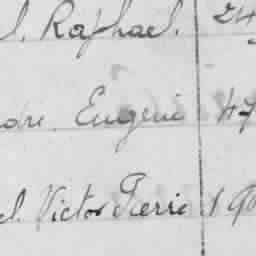 l. Raphael. 24
ore. Eugene 47
el. Victor Pierre 19